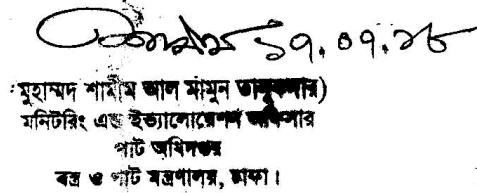 ১৭.০৭.১৮
মুহাম্মদ শামীম আল মামুন তালুকদার)
মনিটরিং এন্ড ইভ্যালোয়েশন অফিসার
পাট অধিদপ্তর
বস্ত্র ও পাট মন্ত্রণালয়, ঢাকা।